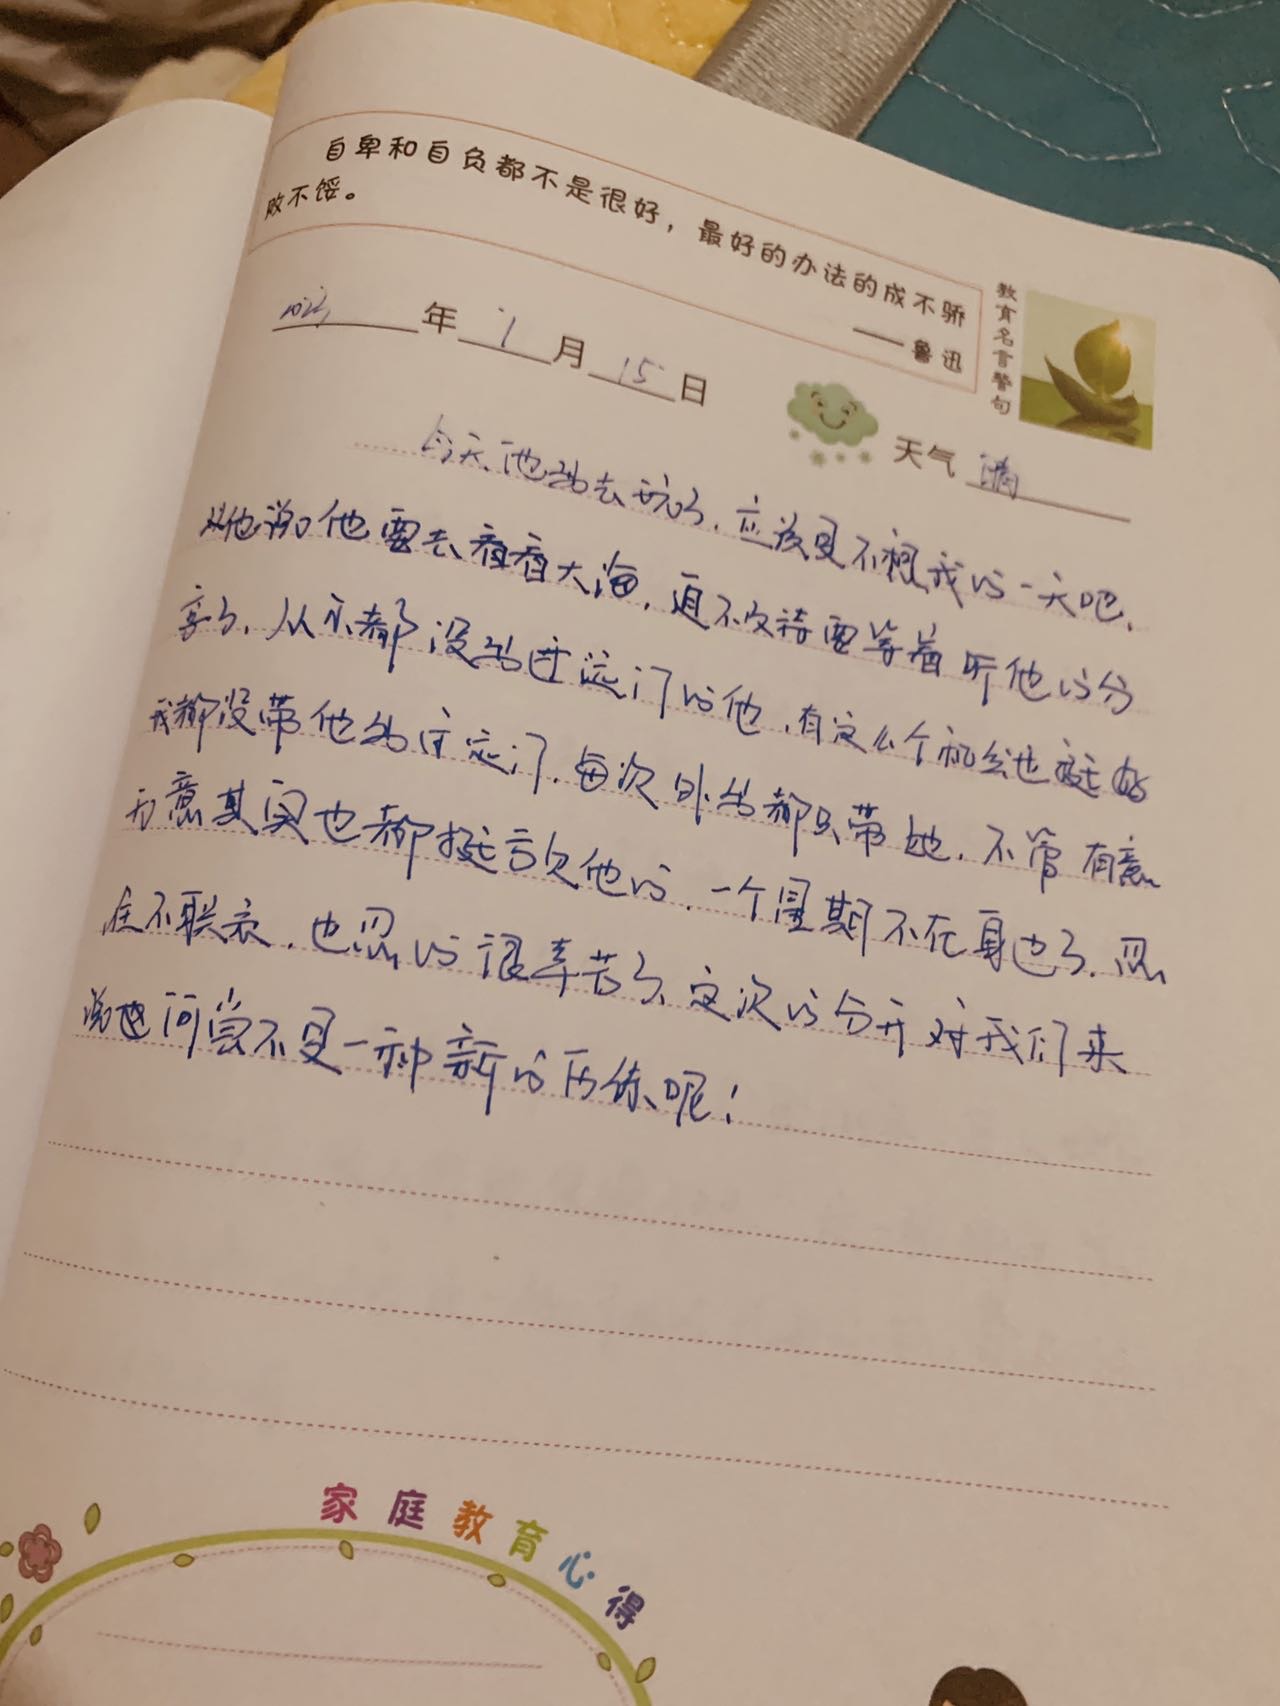 自卑和自负都不是很好，最好的办法的成不骄
败不馁。
——鲁迅
教育名言警句
年 1 月 15 日
天气 晴
今天他出去玩了，应该是不想我的一天吧，
从他说他要去看看大海，迫不及待要等着听他的分
享了，从来都没出过远门的他，有这么个机会也挺好
我都没带他出过远门，每次外出都只带她，不管有意
无意其实也都挺亏欠他的，一个星期不在身边了，忍
住不联系，也忍的很辛苦了，这次的分开对我们来
说也何尝不是一种新的历练呢！
家庭教育心得